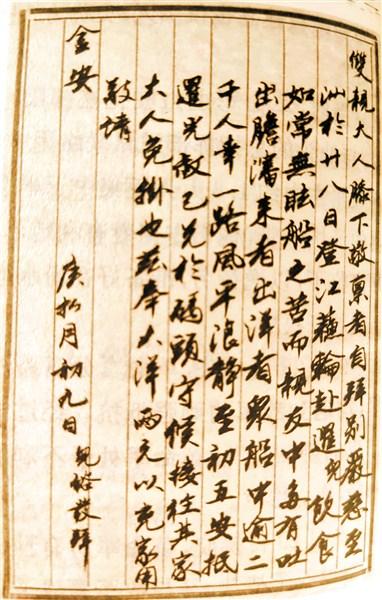 雙親大人膝下敬稟者自拜别嚴慈至
汕於廿八日登江蘓輪赴暹兒飲食
如常無眩船之苦而親友中每有吐
出膽瀋來者出洋者衆船中逾二
千人幸一路風平浪静至初五安抵
暹光敬乙兄於碼頭守候接往其家
大人免掛也兹奉大洋兩元以充家用
敬請
金安
庚拾月初九日 兒裕發拜